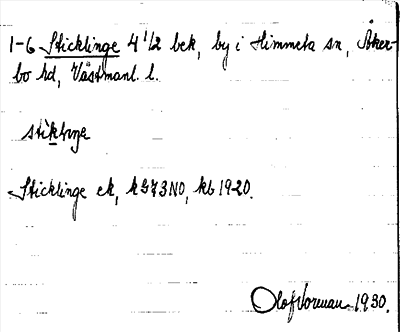 1-6 Sticklinge 4 1/2 bek, by i Himmeta sn, Åker-
bo hd, Västmanl. l.
Sticklinge ek, k 373 NO, kb 1920.
Olof Norman 1930.